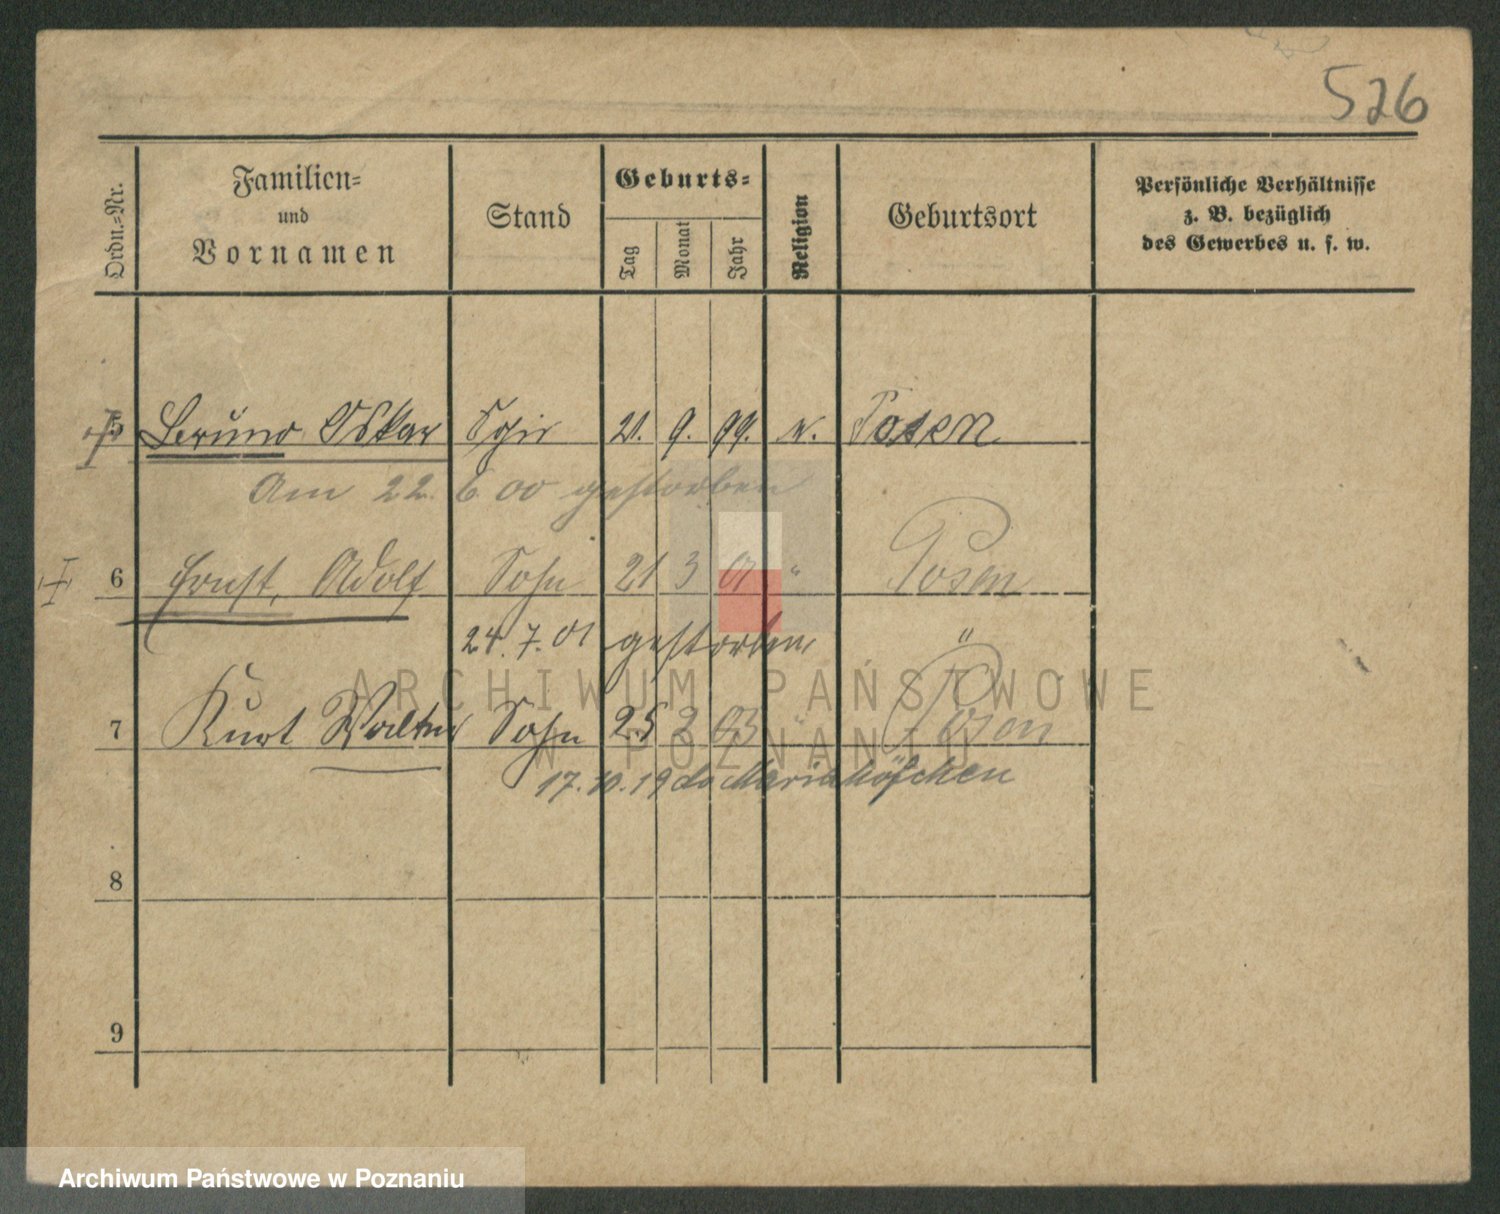 526
Ordn.-Nr. Familien- und Vornamen Stand Geburts- Tag Monat Jahr Religion Geburtsort Persönliche Verhältnisse z. B. bezüglich des Gewerbes u. s. w.
5 Bruno Oskar Sohn 21. 9. 99. Posen
Am 22. 6 00 gestorben
6 Ernst, Adolf Sohn 21 3 01 " Posen
24. 7. 01 gestorben "
7 Kurt Walter Sohn 25 2 03 " Posen
17. 10. 19 do Mariahöfchen
8
9
ARCHIWUM PAŃSTWOWE
W POZNANIU
Archiwum Państwowe w Poznaniu